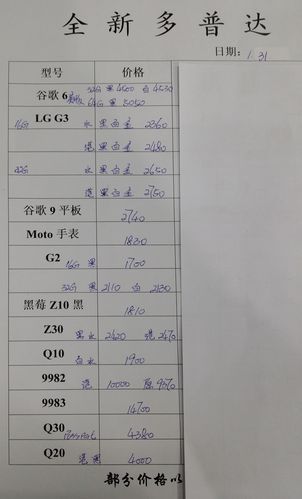 全新多普达
日期: 1.31
型号 价格
谷歌 6 32G 黑 4500 白 4530
美版 64G 黑 5050
LG G3 16G 水 黑白金 2360
港 黑白金 2480
32G 水 黑白金 2650
港 黑白金 2750
谷歌 9 平板 2740
Moto 手表 1830
G2 16G 黑 1700
32G 黑 2110 白 2130
黑莓 Z10 黑 1810
Z30 黑水 2420 港 2470
Q10 白水 1900
9982 港 10000 原 9570
9983 14700
Q30 4380
Q20 港 黑 4000
部分价格以